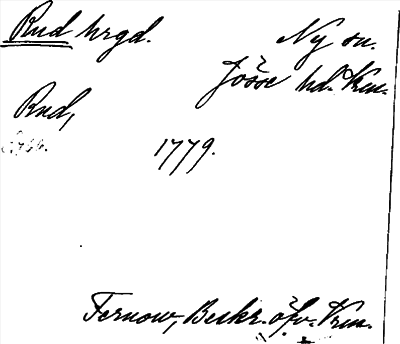 Rud hrgd.
Ny sn.
Jösse hd. Vrm.
Rud,
1779.
Fernow, Beskr. öfv. Vrm.